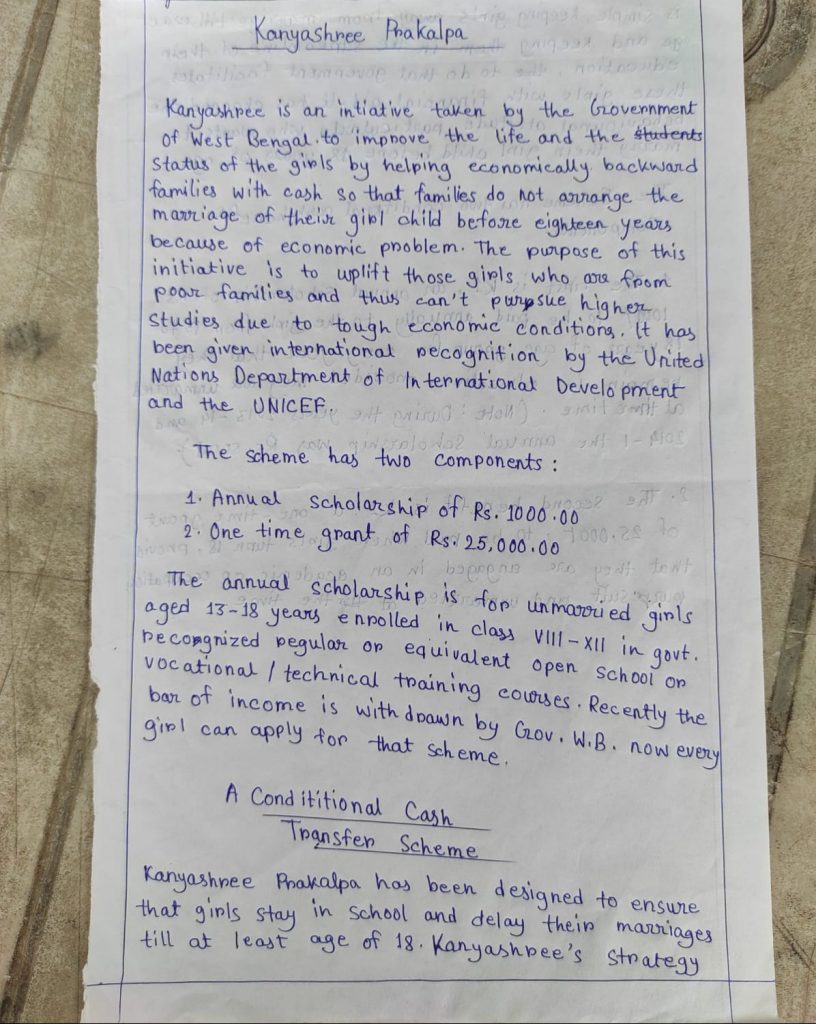 Kanyashree Prakalpa
Kanyashree is an intiative taken by the Government
of West Bengal. to improve the life and the students
status of the girls by helping economically backward
families with cash so that families do not arrange the
marriage of their girl child before eighteen years
because of economic problem. The purpose of this
initiative is to uplift those girls who are from
poor families and thus can't purpsue higher
studies due to tough economic conditions. It has
been given international recognition by the United
Nations Department of International Development
and the UNICEF.
The scheme has two components :
1. Annual scholarship of Rs. 1000.00
2. One time grant of Rs. 25,000.00
The annual scholarship is for unmarried girls
aged 13-18 years enrolled in class VIII - XII in govt.
recongnized regular or equivalent open school or
vocational / technical training courses. Recently the
bar of income is withdrawn by Gov. W.B. now every
girl can apply for that scheme.
A Condititional Cash
Transfer Scheme
Kanyashree Prakalpa has been designed to ensure
that girls stay in school and delay their marriages
till at least age of 18. Kanyashree's strategy